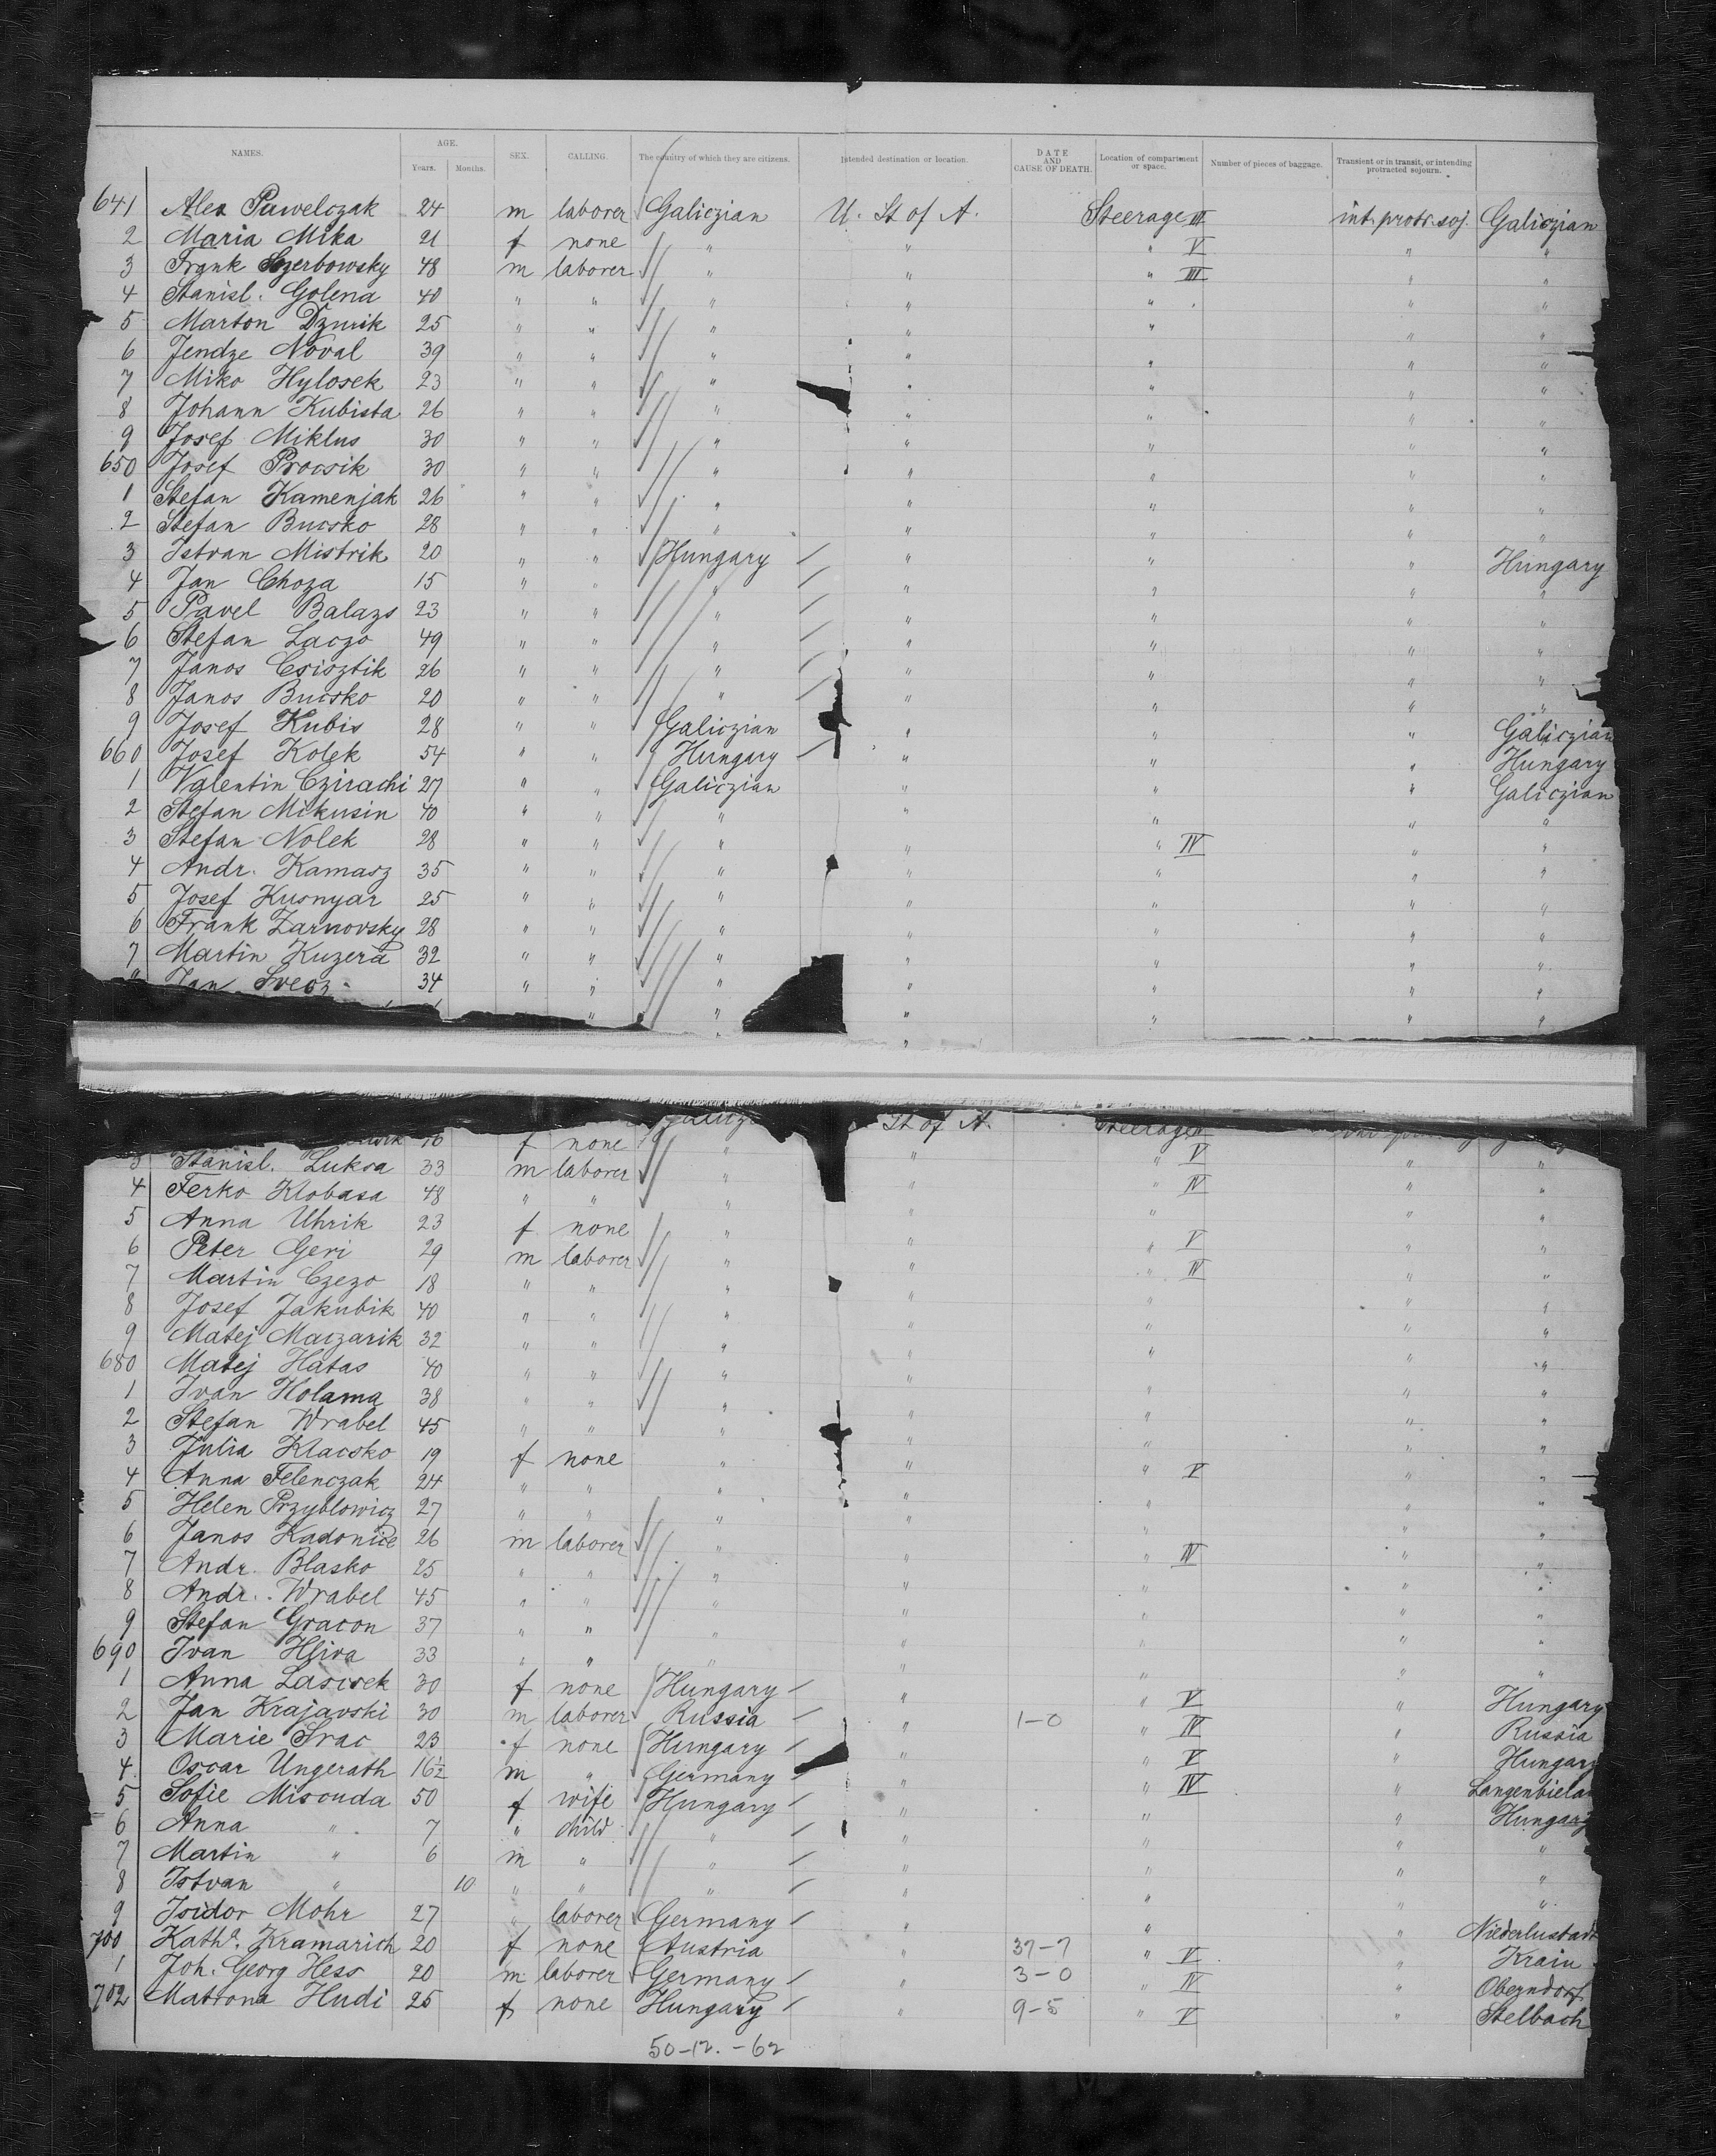 NAMES. AGE. Years. Months. SEX. CALLING. The country of which they are citizens. Intended destination or location. DATE AND CAUSE OF DEATH. Location of compartment or space. Number of pieces of baggage. Transient or in transit, or intending protracted sojourn.
641 Alex Pawelczak 24 m laborer Galiczian U. St of A. Steerage III int. protr. soj. Galiczian
2 Maria Mika 21 f none " " " V " "
3 Frank Szerbowsky 48 m laborer " " " III " "
4 Stanisl. Golena 40 " " " " " " "
5 Marton Dzurik 25 " " " " " " "
6 Jendze Noval 39 " " " " " " "
7 Miko Hylosek 23 " " " " " " "
8 Johann Kubista 26 " " " " " " "
9 Josef Miklus 30 " " " " " " "
650 Josef Procsik 30 " " " " " " "
1 Stefan Kamenjak 26 " " " " " " "
2 Stefan Bucsko 28 " " " " " " "
3 Istvan Mistrik 20 " " Hungary " " " Hungary
4 Jan Choza 15 " " " " " " "
5 Pavel Balazs 23 " " " " " " "
6 Stefan Laczo 49 " " " " " " "
7 Janos Csisztik 26 " " " " " " "
8 Janos Bucsko 20 " " " " " " "
9 Josef Kubis 28 " " Galiczian " " " Galiczian
660 Josef Kolek 54 " " Hungary " " " Hungary
1 Valentin Czirachi 27 " " Galiczian " " " Galiczian
2 Stefan Mikusin 40 " " " " " " "
3 Stefan Nolek 28 " " " " " IV " "
4 Andr. Kamasz 35 " " " " " " "
5 Josef Kusnyar 25 " " " " " " "
6 Frank Zarnovsky 28 " " " " " " "
7 Martin Kuzera 32 " " " " " " "
Jan Svecz 34 " " " " " " "
" " " " " "
St of A. Steerage
16 f none " " " V " "
3 Stanisl. Luksa 33 m laborer " " " IV " "
4 Ferko Klobasa 48 " " " " " " "
5 Anna Uhrik 23 f none " " " V " "
6 Peter Geri 29 m laborer " " " IV " "
7 Martin Czezo 18 " " " " " " "
8 Josef Jakubik 40 " " " " " " "
9 Matej Maczarik 32 " " " " " " "
680 Matej Hatas 40 " " " " " " "
1 Ivan Holama 38 " " " " " " "
2 Stefan Wrabel 45 " " " " " " "
3 Julia Klacsko 19 f none " " " V " "
4 Anna Felenczak 24 " " " " " " "
5 Helen Przyblowicz 27 " " " " " " "
6 Janos Kadonice 26 m laborer " " " IV " "
7 Andr. Blasko 25 " " " " " " "
8 Andr. Wrabel 45 " " " " " " "
9 Stefan Gracon 37 " " " " " " "
690 Ivan Hliva 33 " " " " " " "
1 Anna Lascsek 30 f none Hungary " " V " Hungary
2 Jan Krajavski 30 m laborer Russia " 1-0 " IV " Russia
3 Marie Srac 23 f none Hungary " " V " Hungary
4 Oscar Ungerath 16½ m " Germany " " IV " Langenbielau
5 Sofie Misouda 50 f wife Hungary " " " Hungary
6 Anna " 7 " child " " " " "
7 Martin " 6 m " " " " " "
8 Istvan " 10 " " " " " " "
9 Isidor Mohr 27 " laborer Germany " " " Niederlustadt
700 Katha. Kramarich 20 f none Austria " 37-7 " V " Krain
1 Joh. Georg Hess 20 m laborer Germany " 3-0 " IV " Oberndorf
702 Matrona Hudi 25 f none Hungary " 9-5 " V " Stelbach
50-12.-62